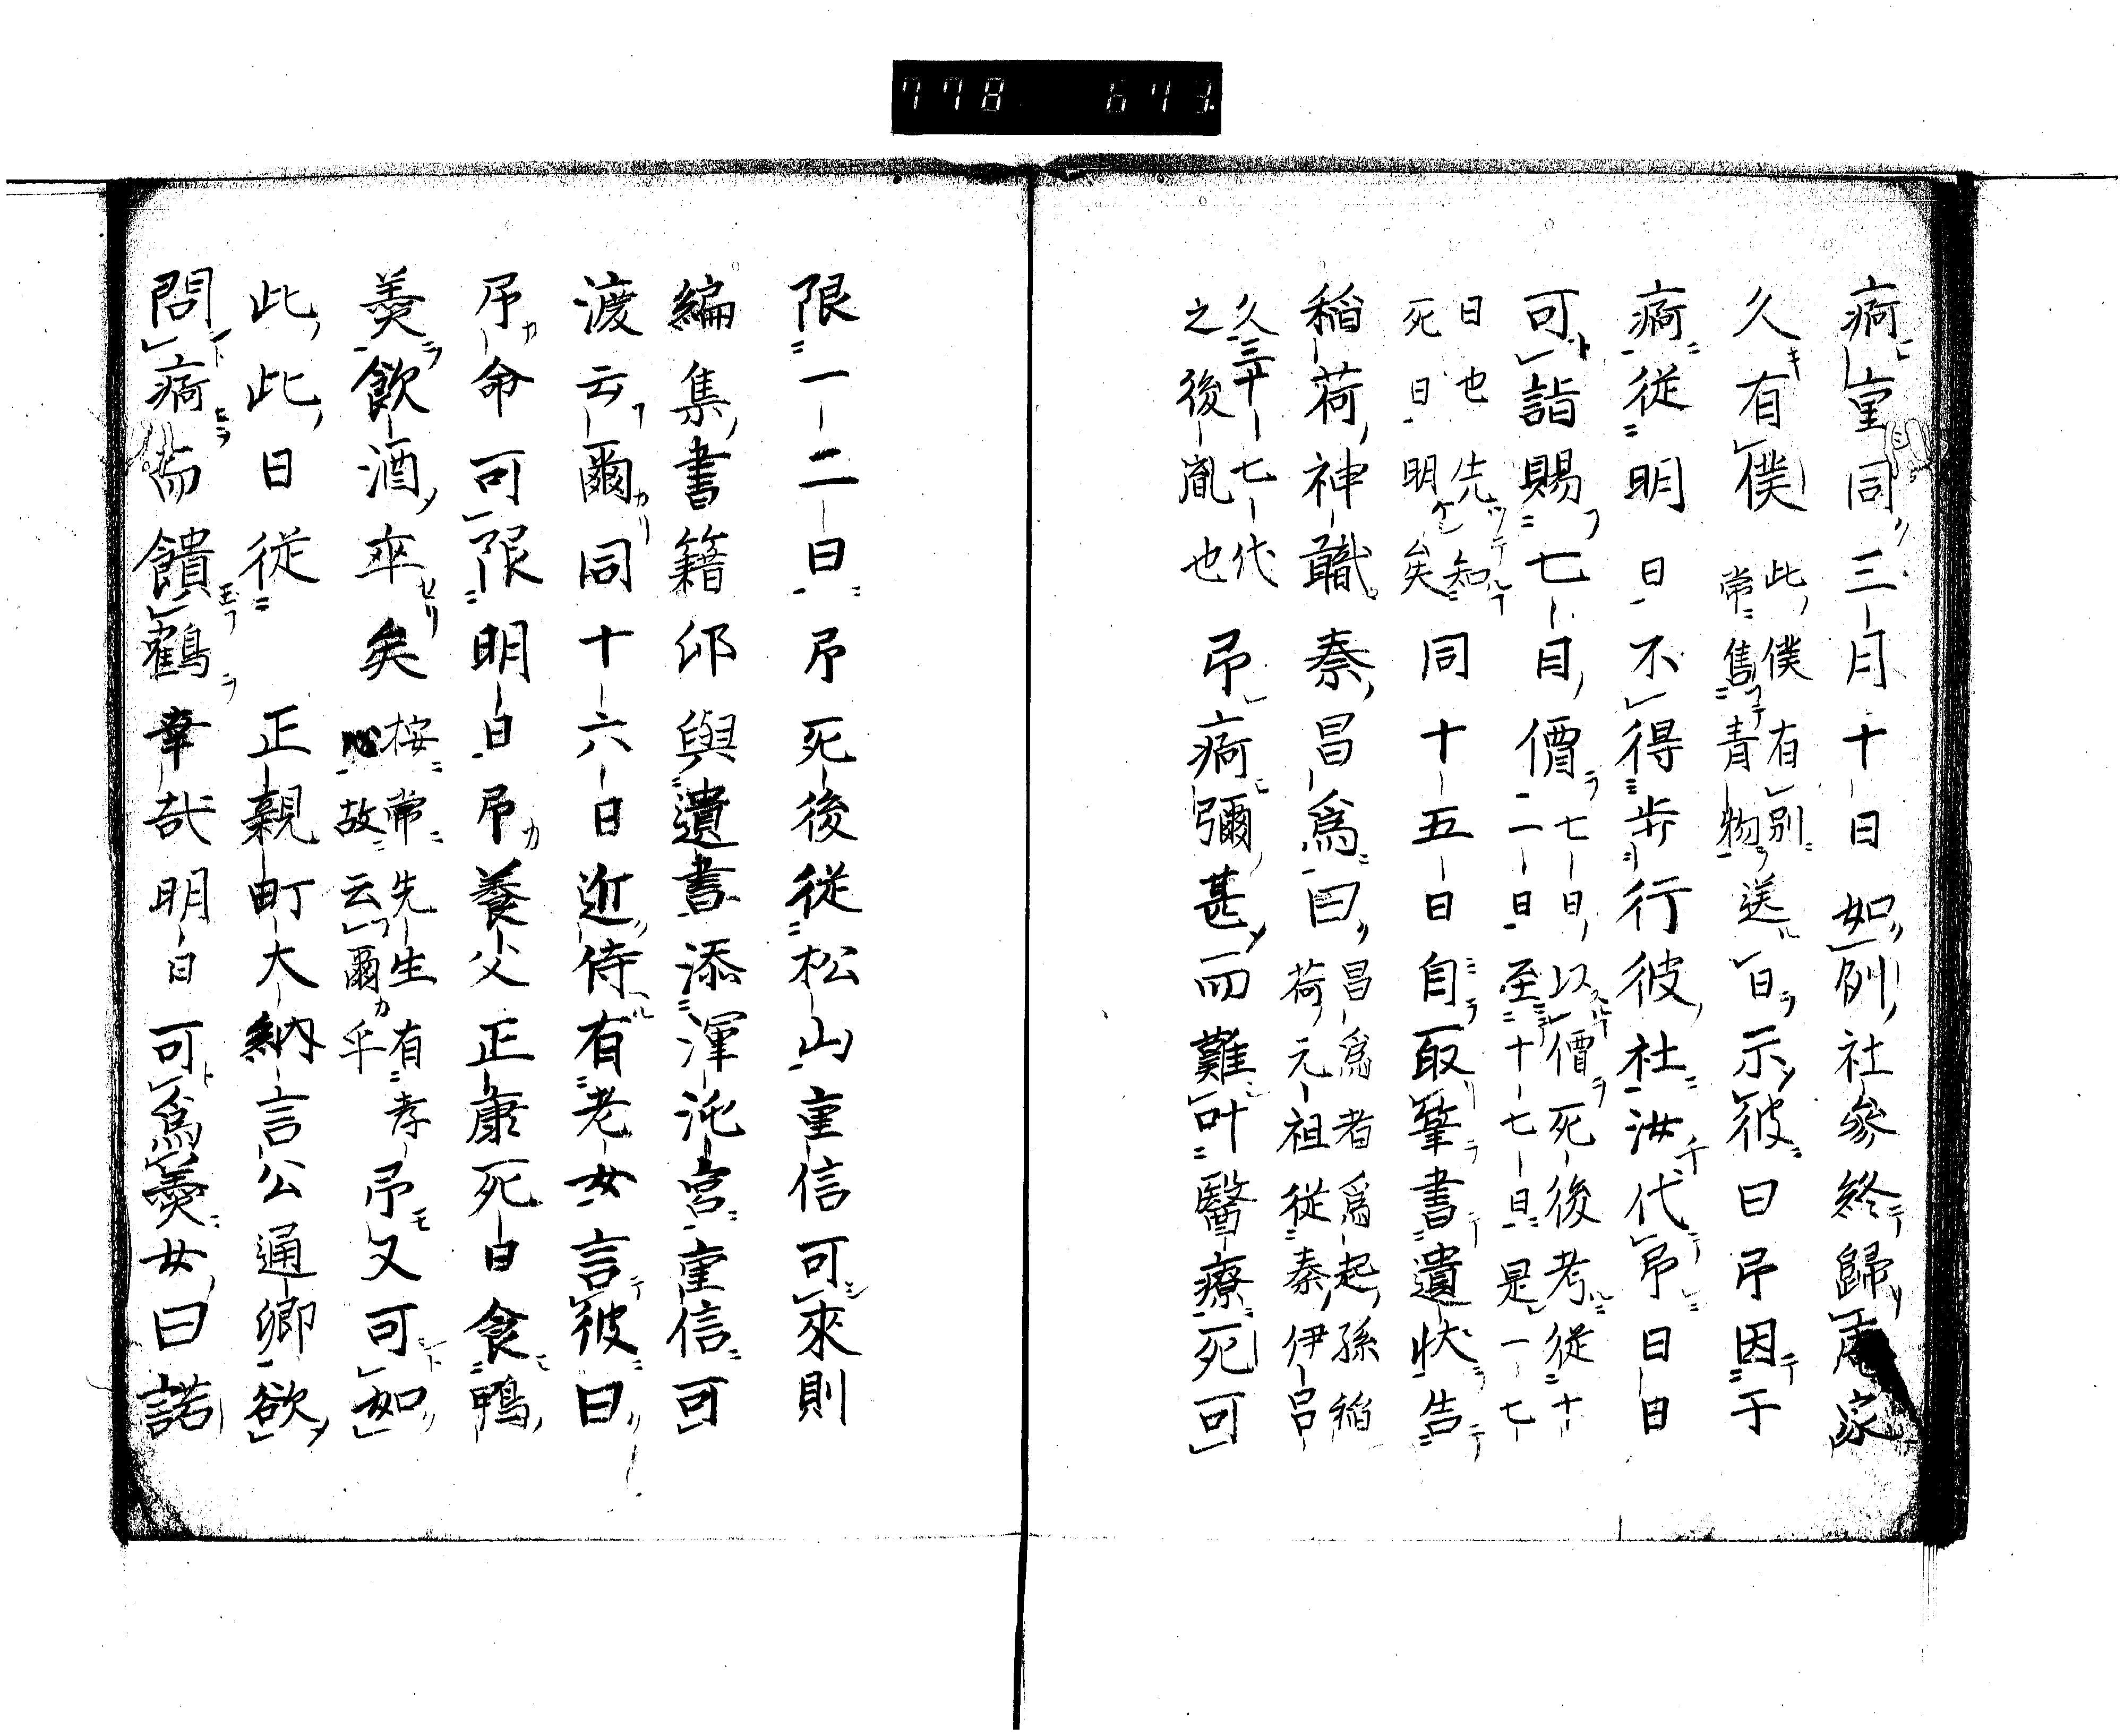 778 673
痾重同三月十日如例社參終歸庵家
久有僕此僕有別常售青物送日示彼曰予因于
痾從明日不得步行彼社汝代予日日
可詣賜七日價七日以價死後考從十二日至十七日是一七
日也先知死日明矣同十五日自取筆書遺状告
稲荷神職秦昌為曰昌為者為起孫稲荷元祖從秦伊呂
久三十七代之後胤也予痾彌甚而難叶醫療死可
限一二日予死後從松山重信可來則
編集書籍卬與遺書添渾沌宮重信可
渡云爾同十六日近侍有老女言彼曰
予命可限明日予養父正康死日食鴨
羹飲酒卒矣桉常先生有孝故云爾乎予又可如
此此日從正親町大納言公通卿欲
問痾而饋鶴幸哉明日可為羹女曰諾